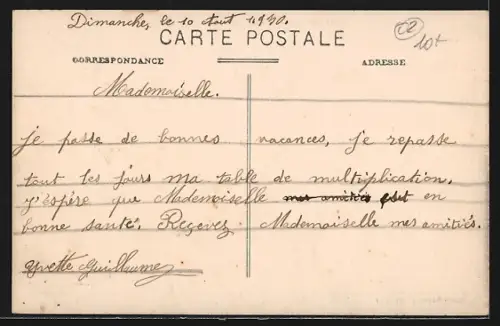 Dimanche, le 10 Aout 1930.
CARTE POSTALE
CORRESPONDANCE
ADRESSE
C2
10t
Mademoiselle.
Je passe de bonnes vacances, Je repasse
tout les jours ma table de multiplication.
j'éspère que Mademoiselle mes amitiés est en
bonne santé. Reçevez Mademoiselle mes amitiés.
Yvette Guillaume